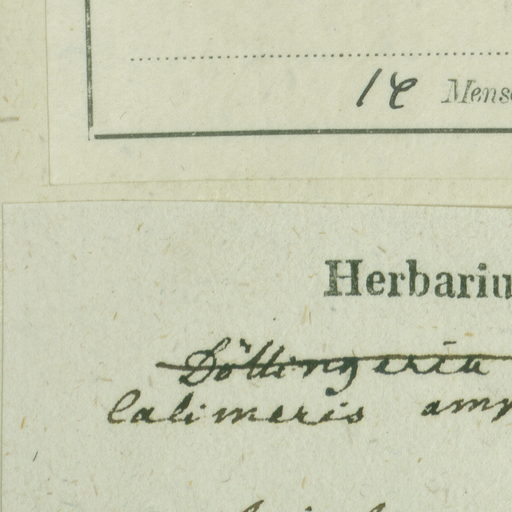 Mens
Herbariu
Döllingeria
Calimeris am